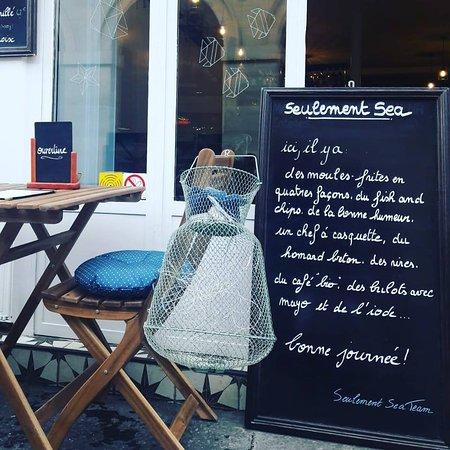 Seulement Sea
ici, il y a :
des moules-frites en
quatres façons. du fish and
chips. de la bonne humeur.
un chef à casquette, du
homard breton. des rires.
du café "bio". des bulots avec
mayo et de l'iode...
bonne journée !
Seulement Sea Team